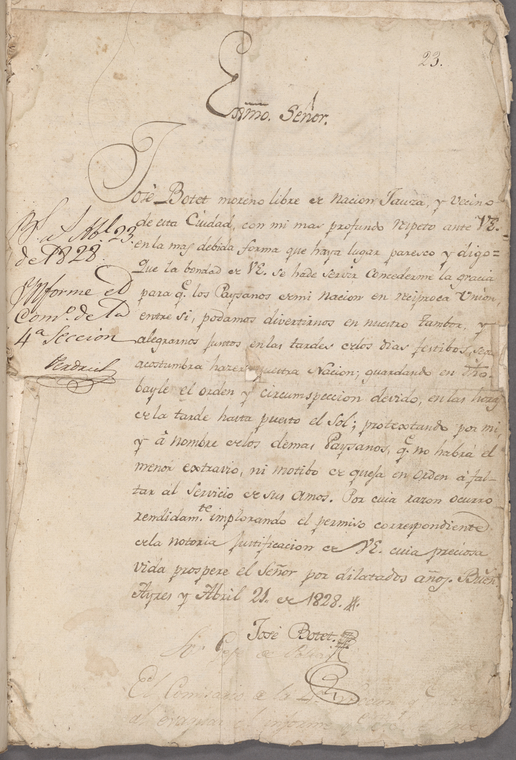 23.
Exmo. Señor.
José Botet moreno libre de nacion Tauza, y Vecino
de esta Ciudad, con mi mas profundo respeto ante VE.
en la mas debida forma que haya lugar paresco y digo=
Que la bondad de VE. se hade servir concederme la gracia
para q.e los Paysanos de mi Nacion en reciproca Union
entre si, podamos divertirnos en nuestro tambor, y
alegrarnos juntos en las tardes de los dias festibos, 
acostumbra hazer nuestra Nacion; guardando en 
bayle el orden y circunspeccion devido, en las horas
de la tarde hasta puesto el Sol; protextando por mi
y â nombre de los demas Paysanos, q.e no habrá el
menor extravio, ni motibo de quesa en orden á fal-
tar al Servicio de sus Amos. Por cuia razon ocurro
rendidam.te implorando el permiso correspondiente
de la notoria justificacion de VE. cuia preciosa
vida prospere el Señor por dilatados años. Buen.s
Ayres y Abril 21. de 1828.
José Botet.
Abl 23.
de 1828.
Ynforme el
Com.o de la
4a Seccion
El Comisario de la 4a Seccion
el informe